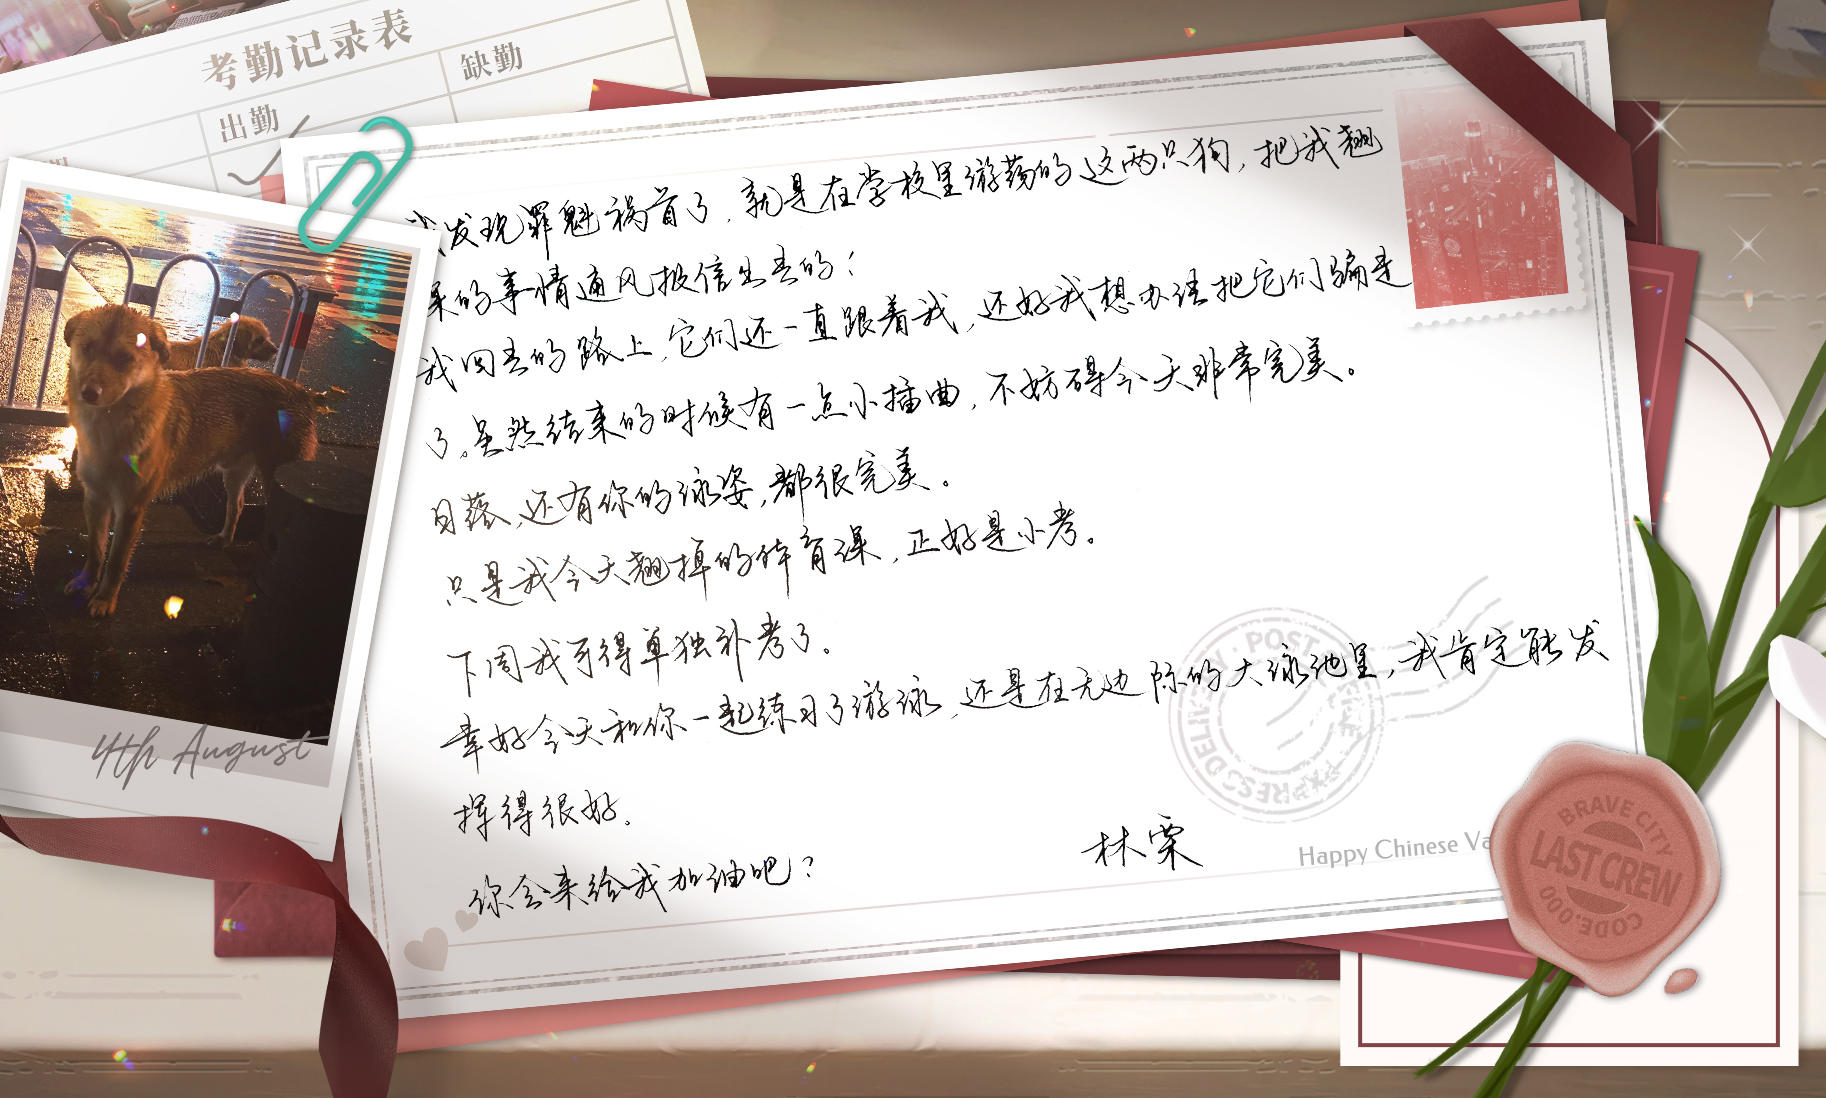 考勤记录表
出勤
缺勤
我发现罪魁祸首了，就是在学校里游荡的这两只狗，把我翘
课的事情通风报信出去的！
我回去的路上，它们还一直跟着我，还好我想办法把它们骗走
了。虽然结束的时候有一点小插曲，不妨碍今天非常完美。
日落，还有你的泳姿，都很完美。
只是我今天翘掉的体育课，正好是小考。
下周我可得单独补考了。
幸好今天和你一起练习了游泳，还是在无边际的大泳池里，我肯定能发
挥得很好。
你会来给我加油吧？
林栗
4th August
POST
EXPRESS DELIVERY
Happy Chinese Va
BRAVE CITY
LAST CREW
CODE:000